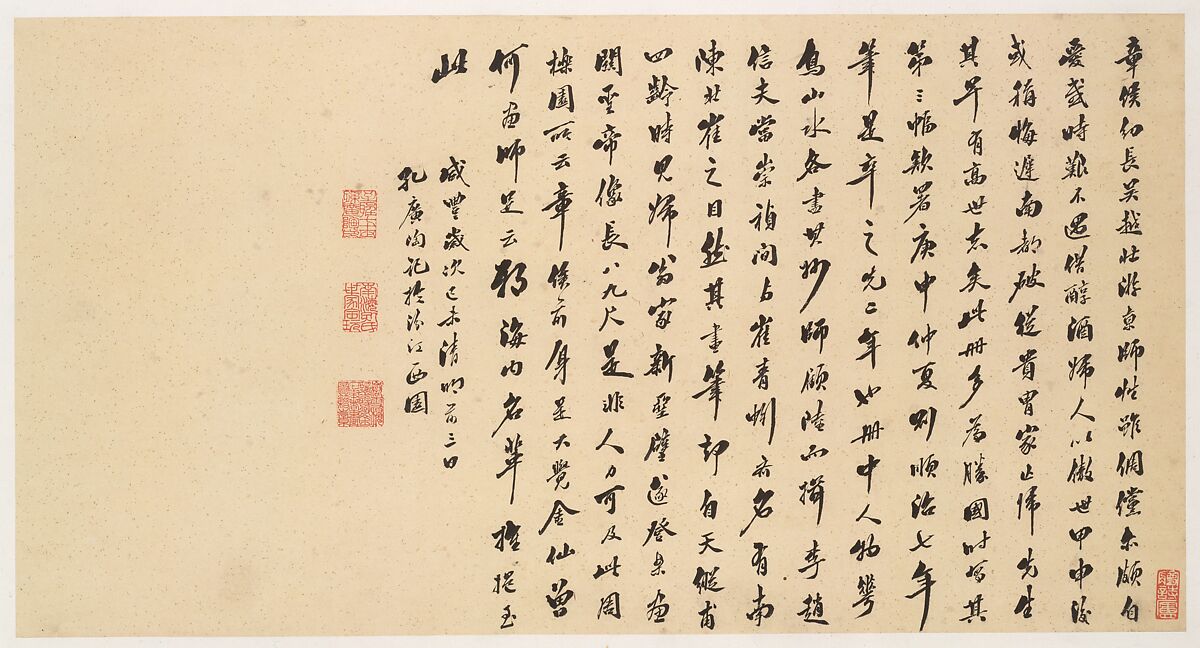 章侯幻長吳越壯游京師性雖倜儻亦頗自
愛哉時難不遇借醇酒婦人以傲世甲申後
或稱悔遲南都破從貴冑家止歸先生
其早有高世志矣此冊多為勝國時写其
第三幀款署庚申仲夏則順治七年
筆是卒之先二年也冊中人物華
鳥山水各畫其妙師顧陸而攝李趙
信夫當崇禎間与崔青蚓齐名有南
陳北崔之目然其畫筆却自天縱甫
四齡時見婦翁家新堊壁遂登桌画
關聖帝像長八九尺是非人力可及此周
櫟園所云章侯前身是大覺金仙曾
何画師足云於海內名輩推挹至
此
咸豐歲次己未清明前三日
孔廣陶記於汾江西園